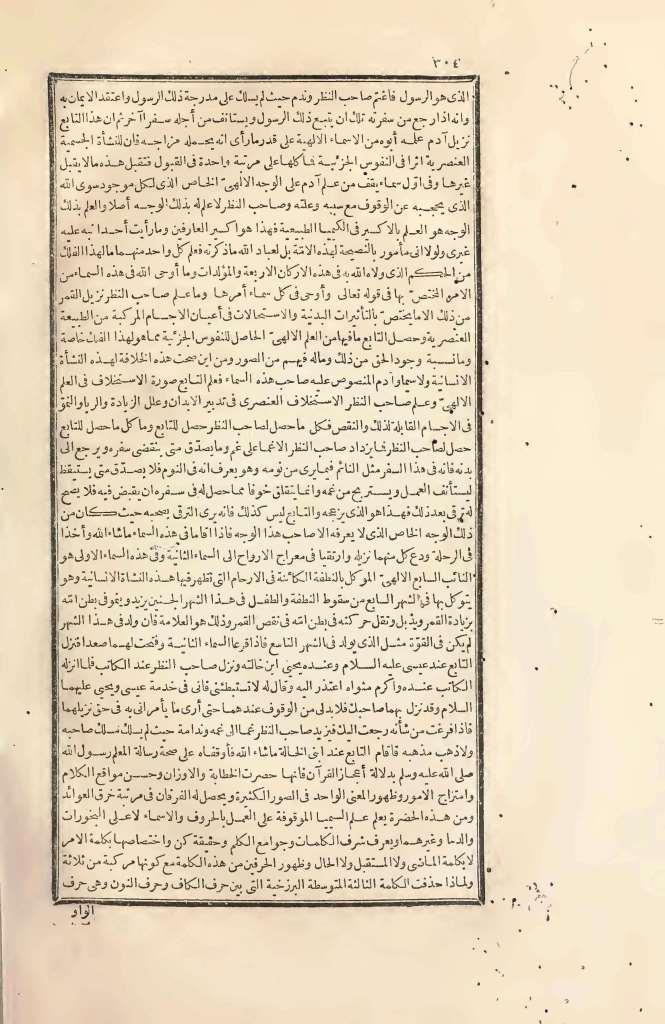 ٣٠٤
الذى هو الرسول فاغتم صاحب النظر وندم حيث لم يسلك على مدرجة ذلك الرسول واعتقد الايمان به
وانه اذا رجع من سفرته تلك ان يتبع ذلك الرسول ويستأنف من أجله سفرا آخر ثم ان هذا التابع
نزيل آدم علمه أبوه من الاسماء الالهية على قدر ما رأى انه يحمله مزاجه فان للنشأة الجسمية
العنصرية أثرا فى النفوس الجزئية فما كلها على مرتبة واحدة فى القبول فتقبل هذه ما لا يقبل
غيرها وفى اول سماء يقف من علم آدم على الوجه الالهىّ الخاص الذى لكل موجود سوى الله
الذى يحجبه عن الوقوف مع سببه وعلته وصاحب النظر لا علم له بذلك الوجه أصلا والعلم بذلك
الوجه هو العلم بالاكسير فى الكيميا الطبيعية فهذا هو اكسير العارفين وما رأيت أحدا نبه عليه
غيرى ولولا انى مأمور بالنصيحة لهذه الامّة بل لعباد الله ما ذكرته فعلم كل واحد منهما ما لهذا الفلك
من الحكم الذى ولاه الله به فى هذه الاركان الاربعة والمولدات وما أوحى الله فى هذه السماء من
الامر المختص بها فى قوله تعالى وأوحى فى كل سماء أمرها وما علم صاحب النظر نزيل القمر
من ذلك الا ما يختص بالتأثيرات البدنية والاستحالات فى أعيان الاجسام المركبة من الطبيعة
العنصرية وحصل التابع ما فيها من العلم الالهىّ الحاصل للنفوس الجزئية مما هو لهذا الفلك خاصة
وما نسبة وجود الحق من ذلك وما له فيهم من الصور ومن اين صحت هذه الخلافة لهذه النشأة
الانسانية ولا سيما وآدم المنصوص عليه صاحب هذه السماء فعلم التابع صورة الاستخلاف فى العلم
الالهىّ وعلم صاحب النظر الاستخلاف العنصرى فى تدبير الابدان وعلل الزيادة والربا والنموّ
فى الاجسام القابلة لذلك والنقص فكل ما حصل لصاحب النظر حصل للتابع وما كل ما حصل للتابع
حصل لصاحب النظر فما يزداد صاحب النظر الا غما على غم وما يصدّق متى ينقضى سفره ويرجع الى
بدنه فانه فى هذا السفر مثل النائم فيما يرى من نومه وهو يعرف انه فى النوم فلا يصدّق متى يستيقظ
ليستأنف العمل ويستريح من غمه وانما يتقلق خوفا مما حصل له فى سفره ان يقبض فيه فلا يصح
له ترقى بعد ذلك فهذا هو الذى يزعجه والتابع ليس كذلك فانه يرى الترقى يصحبه حيث كان من
ذلك الوجه الخاص الذى لا يعرفه الا صاحب هذا الوجه فاذا اقاما فى هذه السماء ما شاء الله وأخذا
فى الرحلة ودع كل منهما نزيله وارتقيا فى معراج الارواح الى السماء الثانية وفى هذه السماء الاولى هو
النائب السابع الالهىّ الموكل بالنطفة الكائنة فى الارحام التى تظهر فيها هذه النشأة الانسانية وهو
يتوكل بها فى الشهر السابع من سقوط النطفة والطفل فى هذا الشهر الجنين يزيد وينمو فى بطن امّه
بزيادة القمر ويذبل وتقل حركته فى بطن امّه فى نقص القمر وذلك هو العلامة فان ولد فى هذا الشهر
لم يكن فى القوّة مثل الذى يولد فى الشهر التاسع فاذا قرعا السماء الثانية وفتحت لهما صعدا فنزل
التابع عند عيسى عليه السلام وعنده يحيى ابن خالته ونزل صاحب النظر عند الكاتب فلما انزله
الكاتب عنده واكرم مثواه اعتذر اليه وقال له لا تستبطئنى فانى فى خدمة عيسى ويحيى عليهما
السلام وقد نزل بهما صاحبك فلا بد لى من الوقوف عندهما حتى أرى ما يأمرانى به فى حق نزيلهما
فاذا فرغت من شأنه رجعت اليك فيزيد صاحب النظر غما الى غمه وندامة حيث لم يسلك مسلك صاحبه
ولا ذهب مذهبه فأقام التابع عند ابنى الخالة ما شاء الله فأوقفاه على صحة رسالة المعلم رسول الله
صلى الله عليه وسلم بدلالة أعجاز القرآن فانها حضرت الخطابة والاوزان وحسن مواقع الكلام
وامتزاج الامور وظهور المعنى الواحد فى الصور الكثيرة ويحصل له الفرقان فى مرتبة خرق العوائد
ومن هذه الحضرة يعلم علم السيميا الموقوفة على العمل بالحروف والاسماء لا على البخورات
والدما وغيرهما ويعرف شرف الكلمات وجوامع الكلم وحقيقة كن واختصاصها بكلمة الامر
لا بكلمة الماضى ولا المستقبل ولا الحال وظهور الحرفين من هذه الكلمة مع كونها مركبة من ثلاثة
ولماذا حذفت الكلمة الثالثة المتوسطة البرزخية التى بين حرف الكاف وحرف النون وهى حرف
الواو